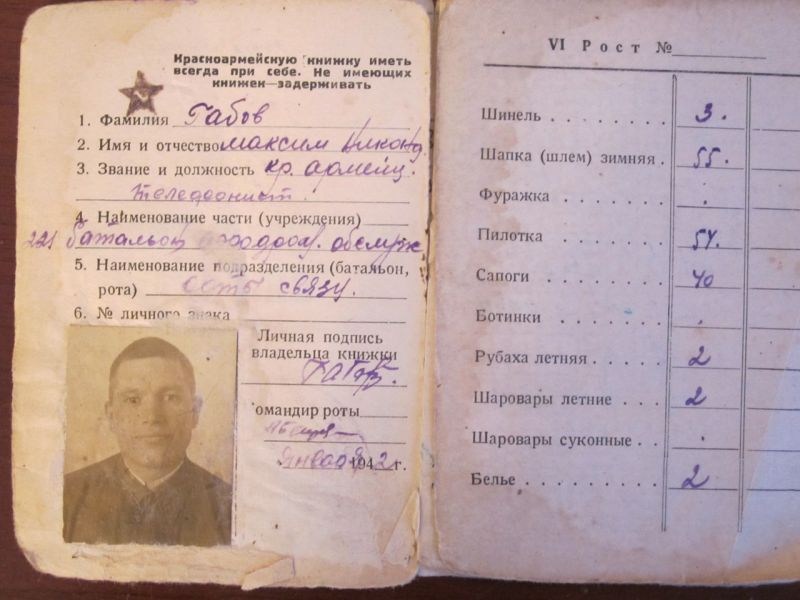 Красноармейскую книжку иметь
всегда при себе. Не имеющих
книжек—задерживать
1. Фамилия Габов
2. Имя и отчество Максим
3. Звание и должность кр. армеец.
телефонист.
4. Наименование части (учреждения)
221 батальон обслуж
5. Наименование подразделения (батальон,
рота) роты связи.
6. № личного знака
Личная подпись
владельца книжки
Габов.
Командир роты
января 1942 г.
VI Рост №
Шинель 3.
Шапка (шлем) зимняя 55.
Фуражка
Пилотка 54.
Сапоги 40
Ботинки
Рубаха летняя 2
Шаровары летние 2
Шаровары суконные
Белье 2